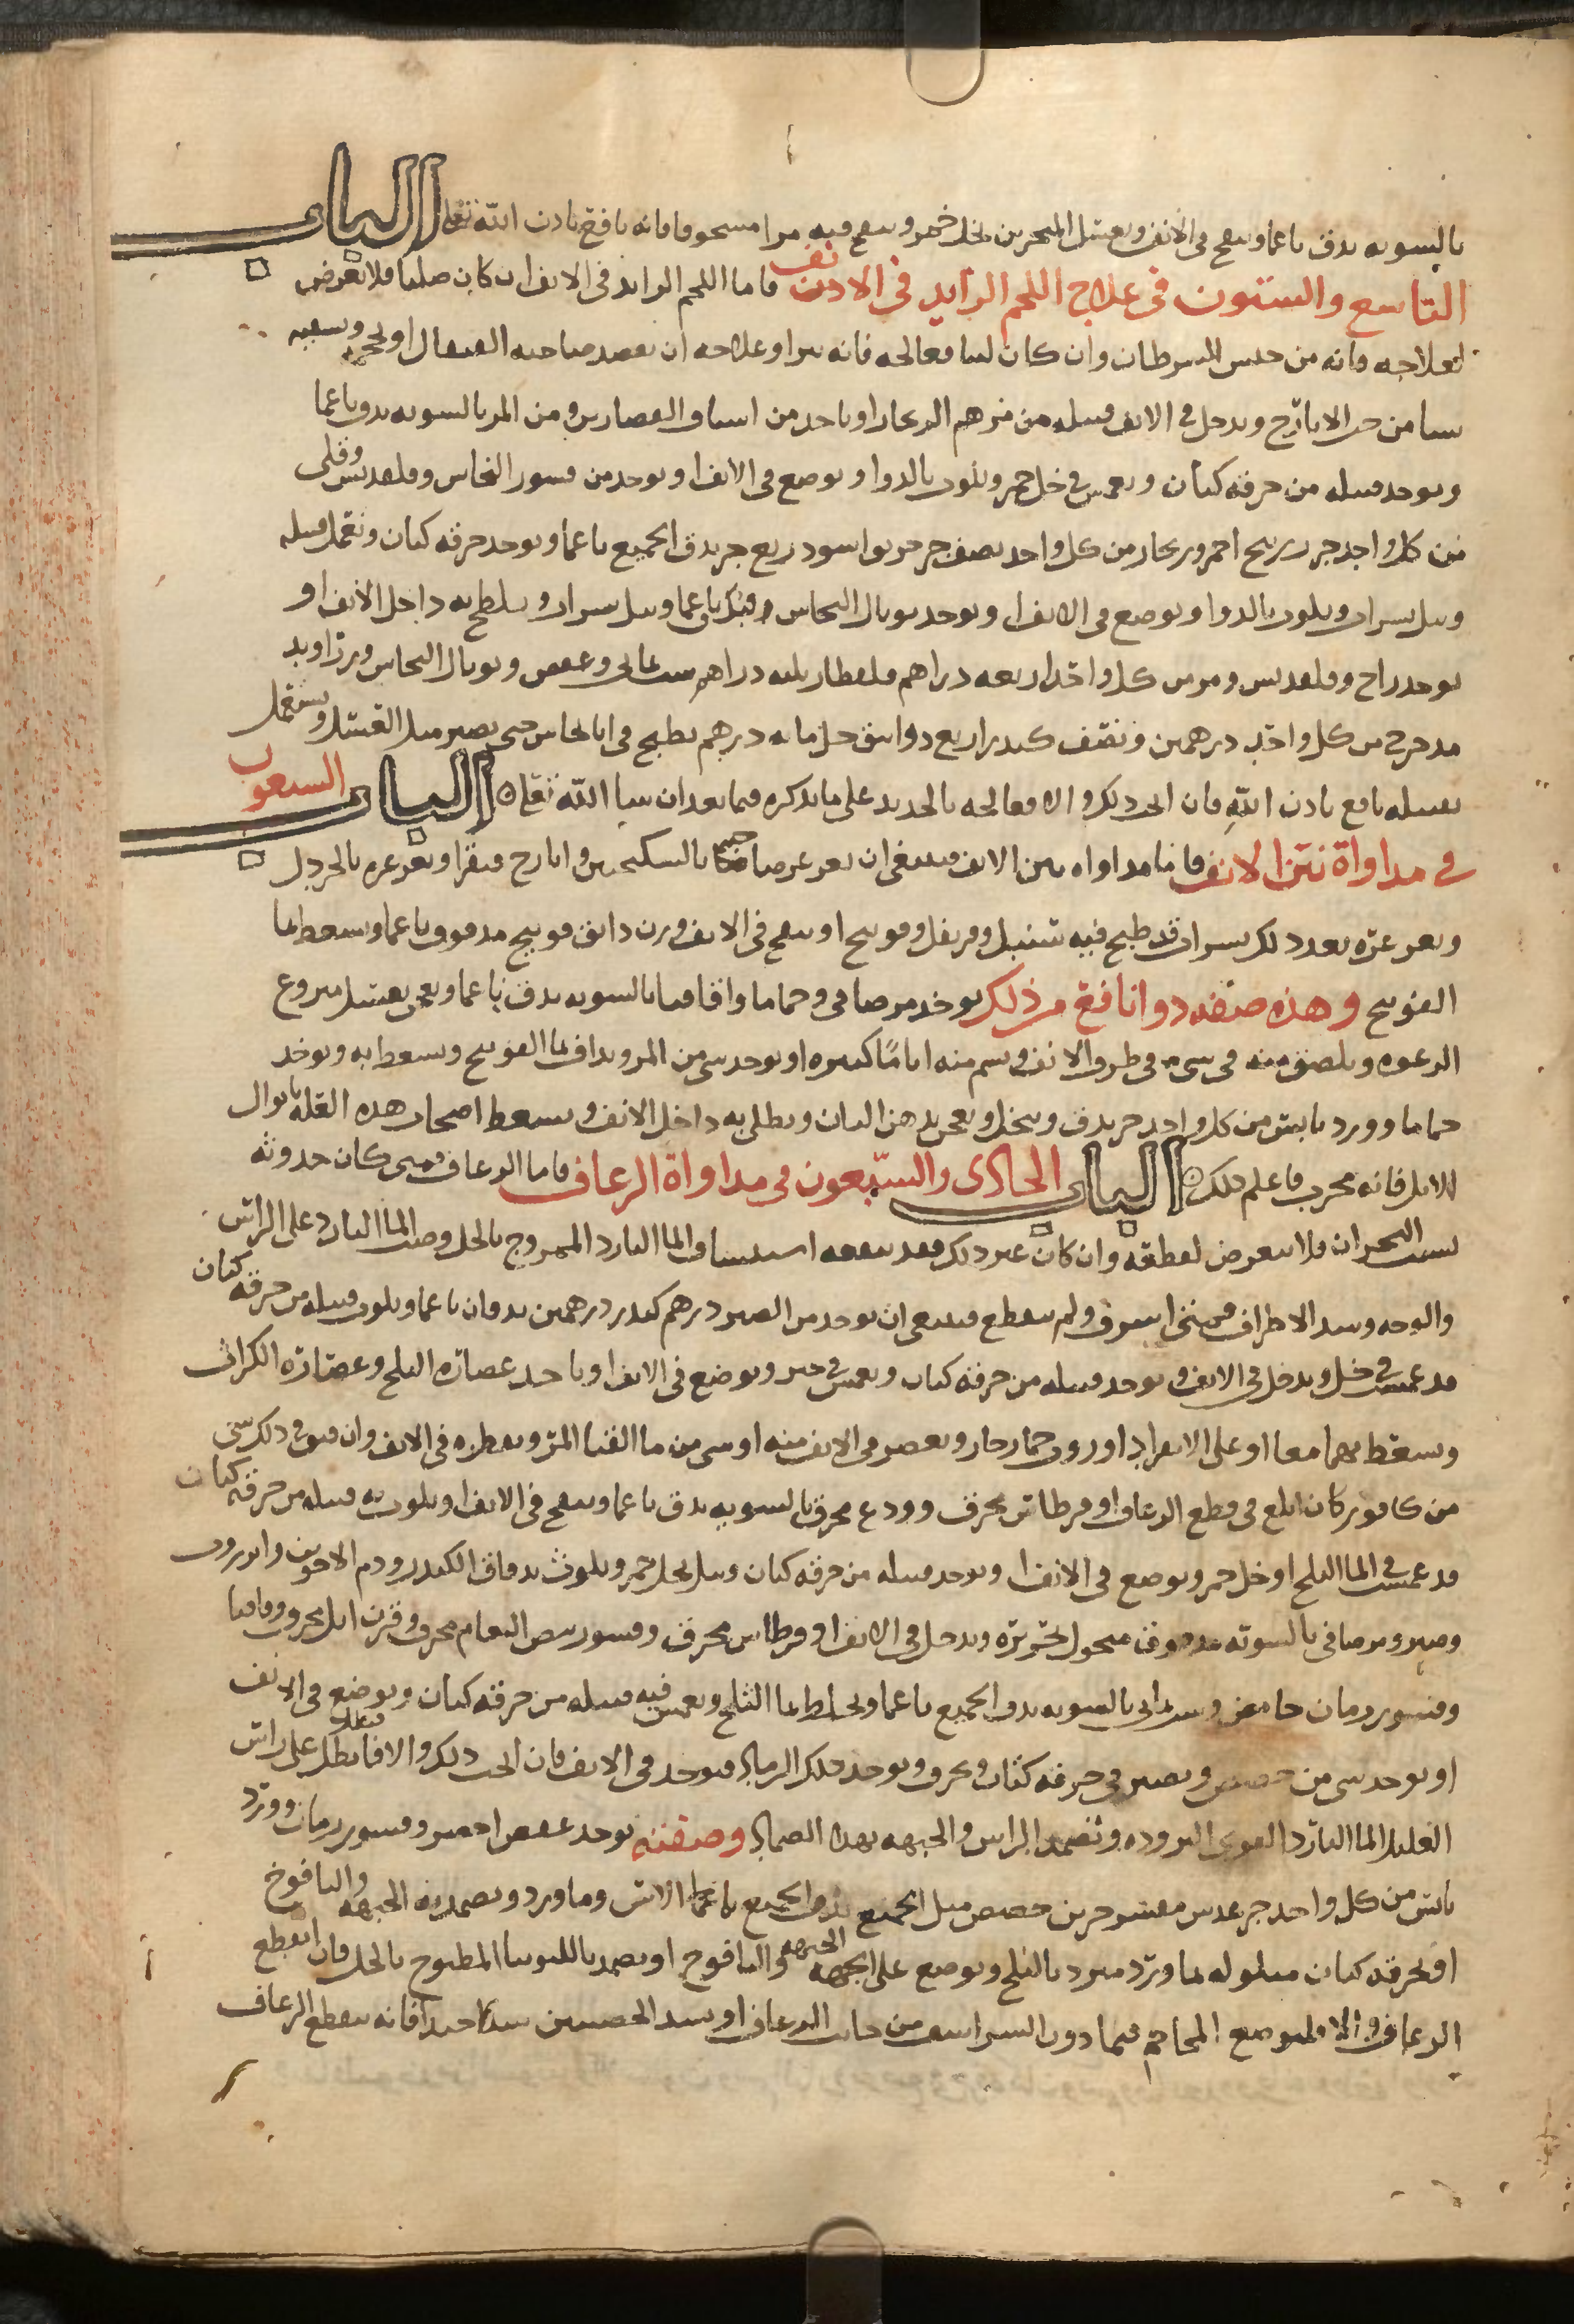 بالسويه يدق ناعما وينفخ في الانف ويغسل المنخرين بخل خمر وينفخ فيه مرا مسحوقا فانه نافع باذن الله تعلى الباب
التاسع والستون في علاج اللحم الزايد في الانف فاما اللحم الزايد في الانف ان كان صلبا فلا تعرض
لعلاجه فانه من جنس السرطان وان كان لينا فعالجه فانه يبرا وعلاجه ان يفصد صاحبه القيفال او يحجم ويسقيه
شيا من حب الايارج ويدخل في الانف فتيله من مرهم الزنجار او ياخذ من اشياف القصارين ومن المر بالسويه يدق ناعما
ويوخذ فتيله من خرقه كتان ويغمس في خل خمر ويلوث بالدوا ويوضع في الانف او يوخذ من قشور النحاس وقلقديس وقلي
من كل واحد جزو زرنيخ احمر وزنجار من كل واحد نصف جزو خربق اسود ربع جزو يدق الجميع ناعما ويوخذ خرقه كتان وتعمل فتيله
وتبل بشراب ويلوث بالدوا ويوضع في الانف او يوخذ توبال النحاس ويدق ناعما ويبل بشراب ويلطخ به داخل الانف او
يوخذ زاج وقلقديس ومر من كل واحد اربعه دراهم قلقطار ثلثه دراهم شب يماني وعفص وتوبال النحاس وزراوند
مدحرج من كل واحد درهمين ونصف كندر اربع دوانيق خل مايه درهم يطبخ في انا نحاس حتى يصير مثل العسل ويستعمل
بفتيله نافع باذن الله فان انجب ذلك والا فعالجه بالحديد على ما نذكره فيما بعد ان شا الله تعلى الباب السبعون
في مداواة نتن الانف فاما مداواه نتن الانف فينبغي ان يغرغر صاحبها بالسكنجبين وايارج فيقرا ويغرغره بالخردل
ويغرغره بعد ذلك بشراب قد طبخ فيه سنبل وقرنفل وفوتنج او ينفخ في الانف وزن دانق فوتنج مدقوق ناعما ويسعط بما
الفوتنج وهذه صفه دوا نافع من ذلك يوخذ مر صافي وحماما واقاقيا بالسويه يدق ناعما ويعجن بعسل منزوع
الرغوه ويلصق منه في شي في طرف الانف ويشم منه اياما كثيره او يوخذ شي من المر ويداف بما الفوتنج ويسعط به ويوخذ
حماما وورد يابس من كل واحد جزو يدق وينخل ويعجن بدهن البان ويطلى به داخل الانف ويسعط اصحاب هذه العله بابوال
الابل فانه مجرب فاعلم ذلك الباب الحادى والسبعون في مداواة الرعاف فاما الرعاف فمتى كان حدوثه
بسبب البحران فلا يتعرض لقطعه وان كان غير ذلك فقد ينفعه استنشاق الما البارد الممزوج بالخل وصب الما البارد على الراس
والوجه وشد الاطراف فمتى اسرف ولم ينقطع فينبغي ان يوخذ من الصبر درهم كندر درهمين يدقان ناعما ويلوث فتيله من خرقه كتان
قد غمست في خل ويدخل في الانف ويوخذ فتيله من خرقه كتان ويغمس في حبر ويوضع في الانف او ياخذ عصاره البلح وعصاره الكراث
ويسعط بهما معا او على الانفراد او روث حمار حار ويعصر في الانف منه او شي من ما القثا المر ويقطره في الانف وان ديف في ذلك شي
من كافور كان ابلغ في قطع الرعاف او قرطاس محرق وودع محرق بالسويه يدق ناعما وينفخ في الانف او يلوث به فتيله من خرقه كتان
قد غمست في الما الثلج او خل خمر ويوضع في الانف او يوخذ فتيله من خرقه كتان وتبل بخل خمر ويلوث بدقاق الكندر ودم الاخوين وانزروت
وصبر ومر صافي بالسويه مدقوق منخول بحريره ويدخل في الانف او قرطاس محرق وقشور بيض النعام محرق وقرن ايل محرق واقاقيا
وقشور رمان حامض وشب يماني بالسويه يدق الجميع ناعما ويخلط بما الثلج ويغمس فيه فتيله من خرقه كتان ويوضع في الانف
او يوخذ شي من جصص ويصير في خرقه كتان ويحرق ويوخذ ذلك الرماد فيوخذ في الانف فان انجب ذلك والا فابطل على راس
العليل الما البارد القوي البروده وتضمد الراس والجبهه بهذا الضماد وصفته يوخذ عفص اخضر وقشور رمان وورد
يابس من كل واحد جزو عدس مقشر جزين جصص مثل الجميع يدق الجميع ناعما بما الاس وما ورد ويضمد به الجبهه واليافوخ
او بخرقه كتان مبلوله بما ورد مبرد بالثلج ويوضع على الجبهه واليافوخ او يضمد باللوبيا المطبوخ بالخل فان انقطع
الرعاف والا فليوضع المحاجم فيما دون الشراسيف من جانب الرعاف او يشد الخصيتين شدا جيدا فانه يقطع الرعاف